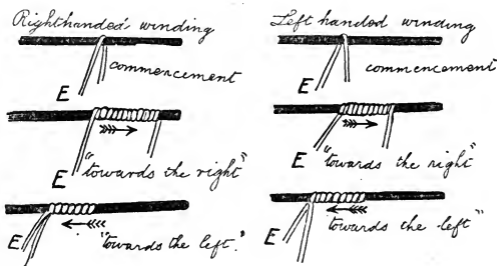 Righthanded winding
E
commencement
E
"towards the right"
E
"towards the left."
Left handed winding
E
commencement
E
"towards the right"
E
"towards the left"